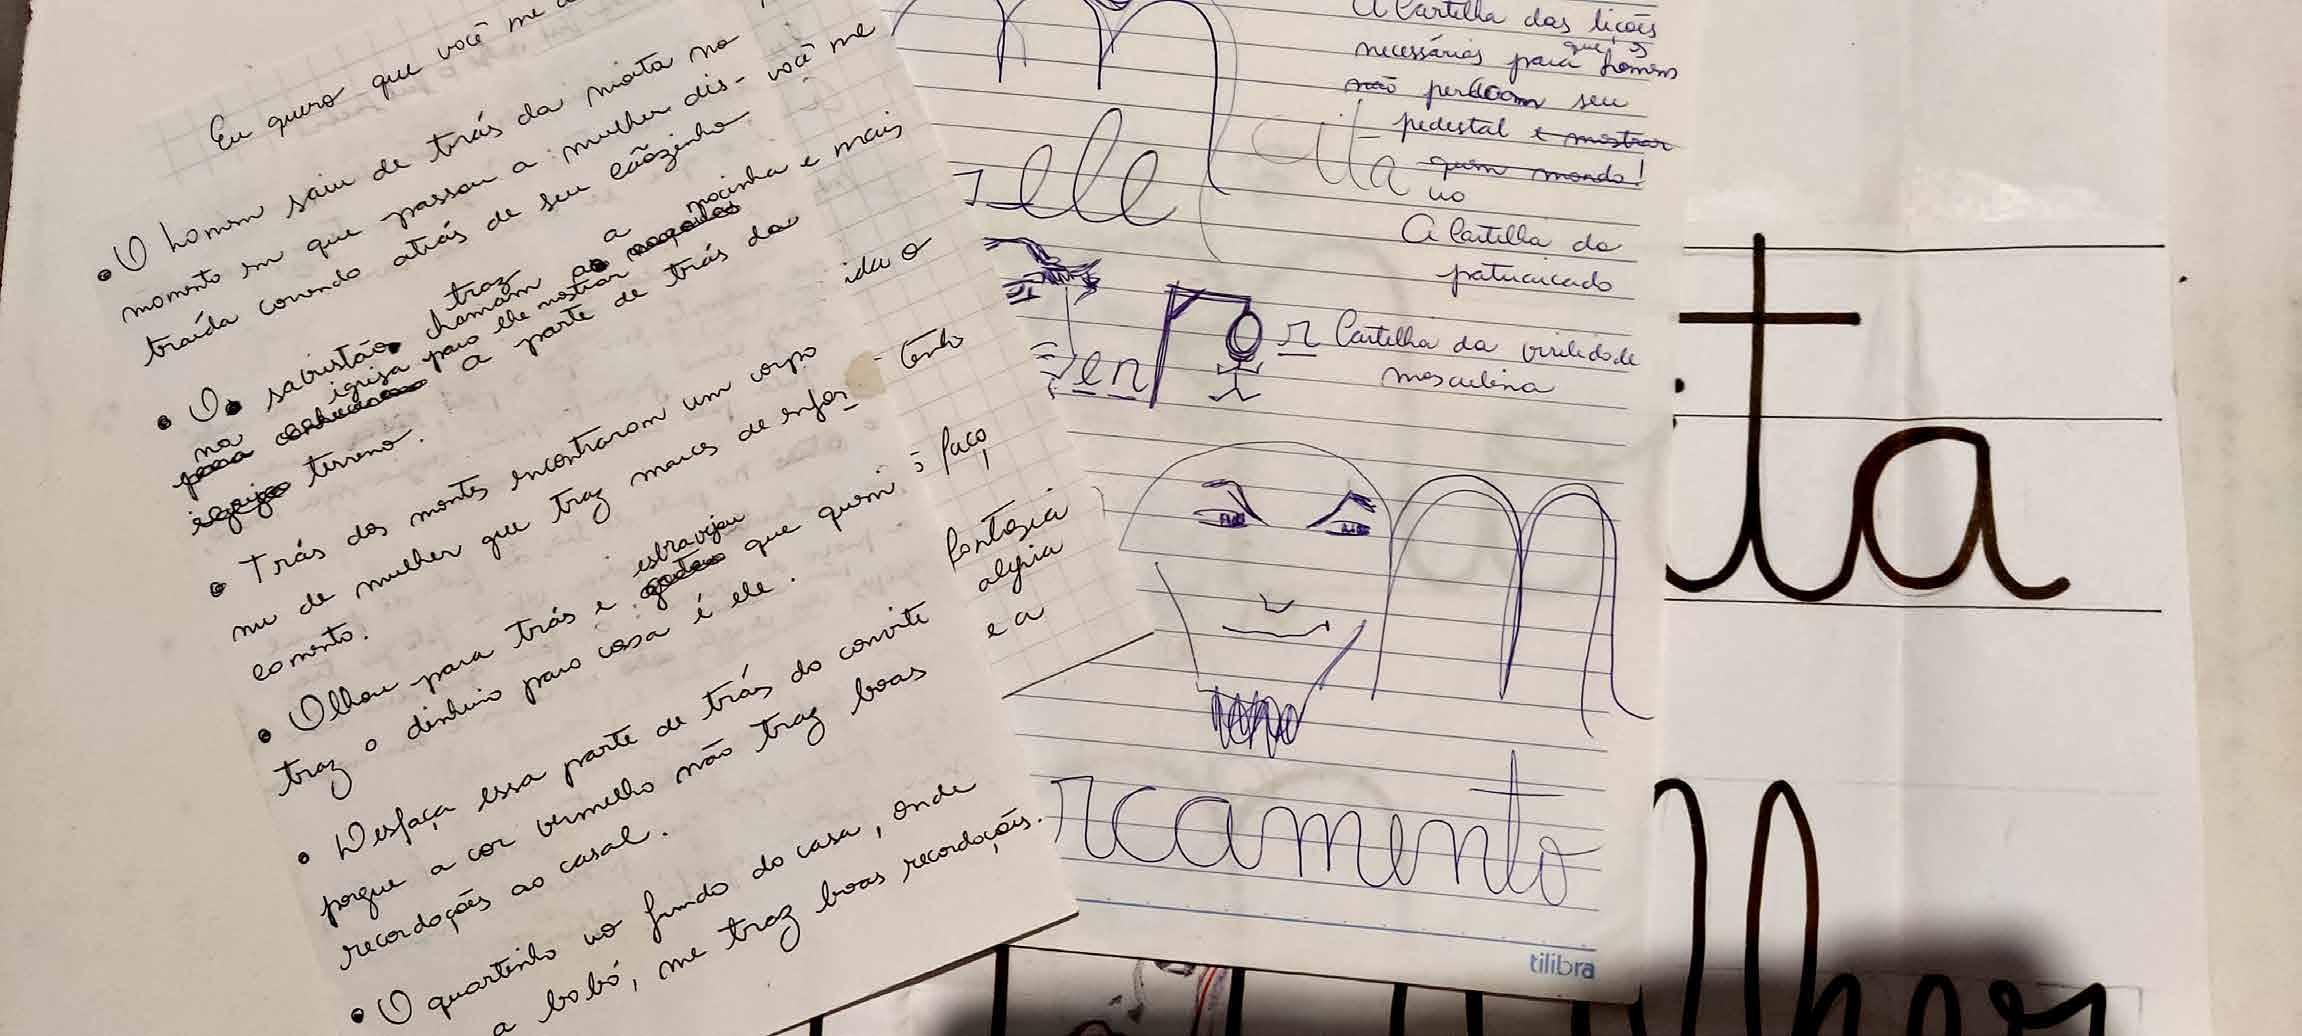 Eu quero que você me
• O homem saiu de trás da moita no
momento em que passou a mulher dis-
traída correndo atrás de seu cãozinho
você me
• O sacristão traz chamam a mocinha e mais
na igreja para ele mostrar
para conhecer a parte de trás da
igreja terreno.
ida o
• Trás dos montes encontraram um corpo
nu de mulher que traz marcas de enfor-
camento.
tenho
• Olhou para trás e esbravejou que quem
traz o dinheiro para casa é ele.
faço
• Desfaça essa parte de trás do convite
porque a cor vermelha não traz boas
recordações ao casal.
fantasia
alegria
e a
• O quartinho no fundo da casa, onde
a babá, me traz boas recordações.
A Cartilha das lições
necessárias para que os homens
não percam seu
pedestal e mostrar
quem manda!
ele
ita
no
A Cartilha do
patriarcado
en
r
Cartilha da virilidade
masculina
m
rcamento
tilibra
ta
lher